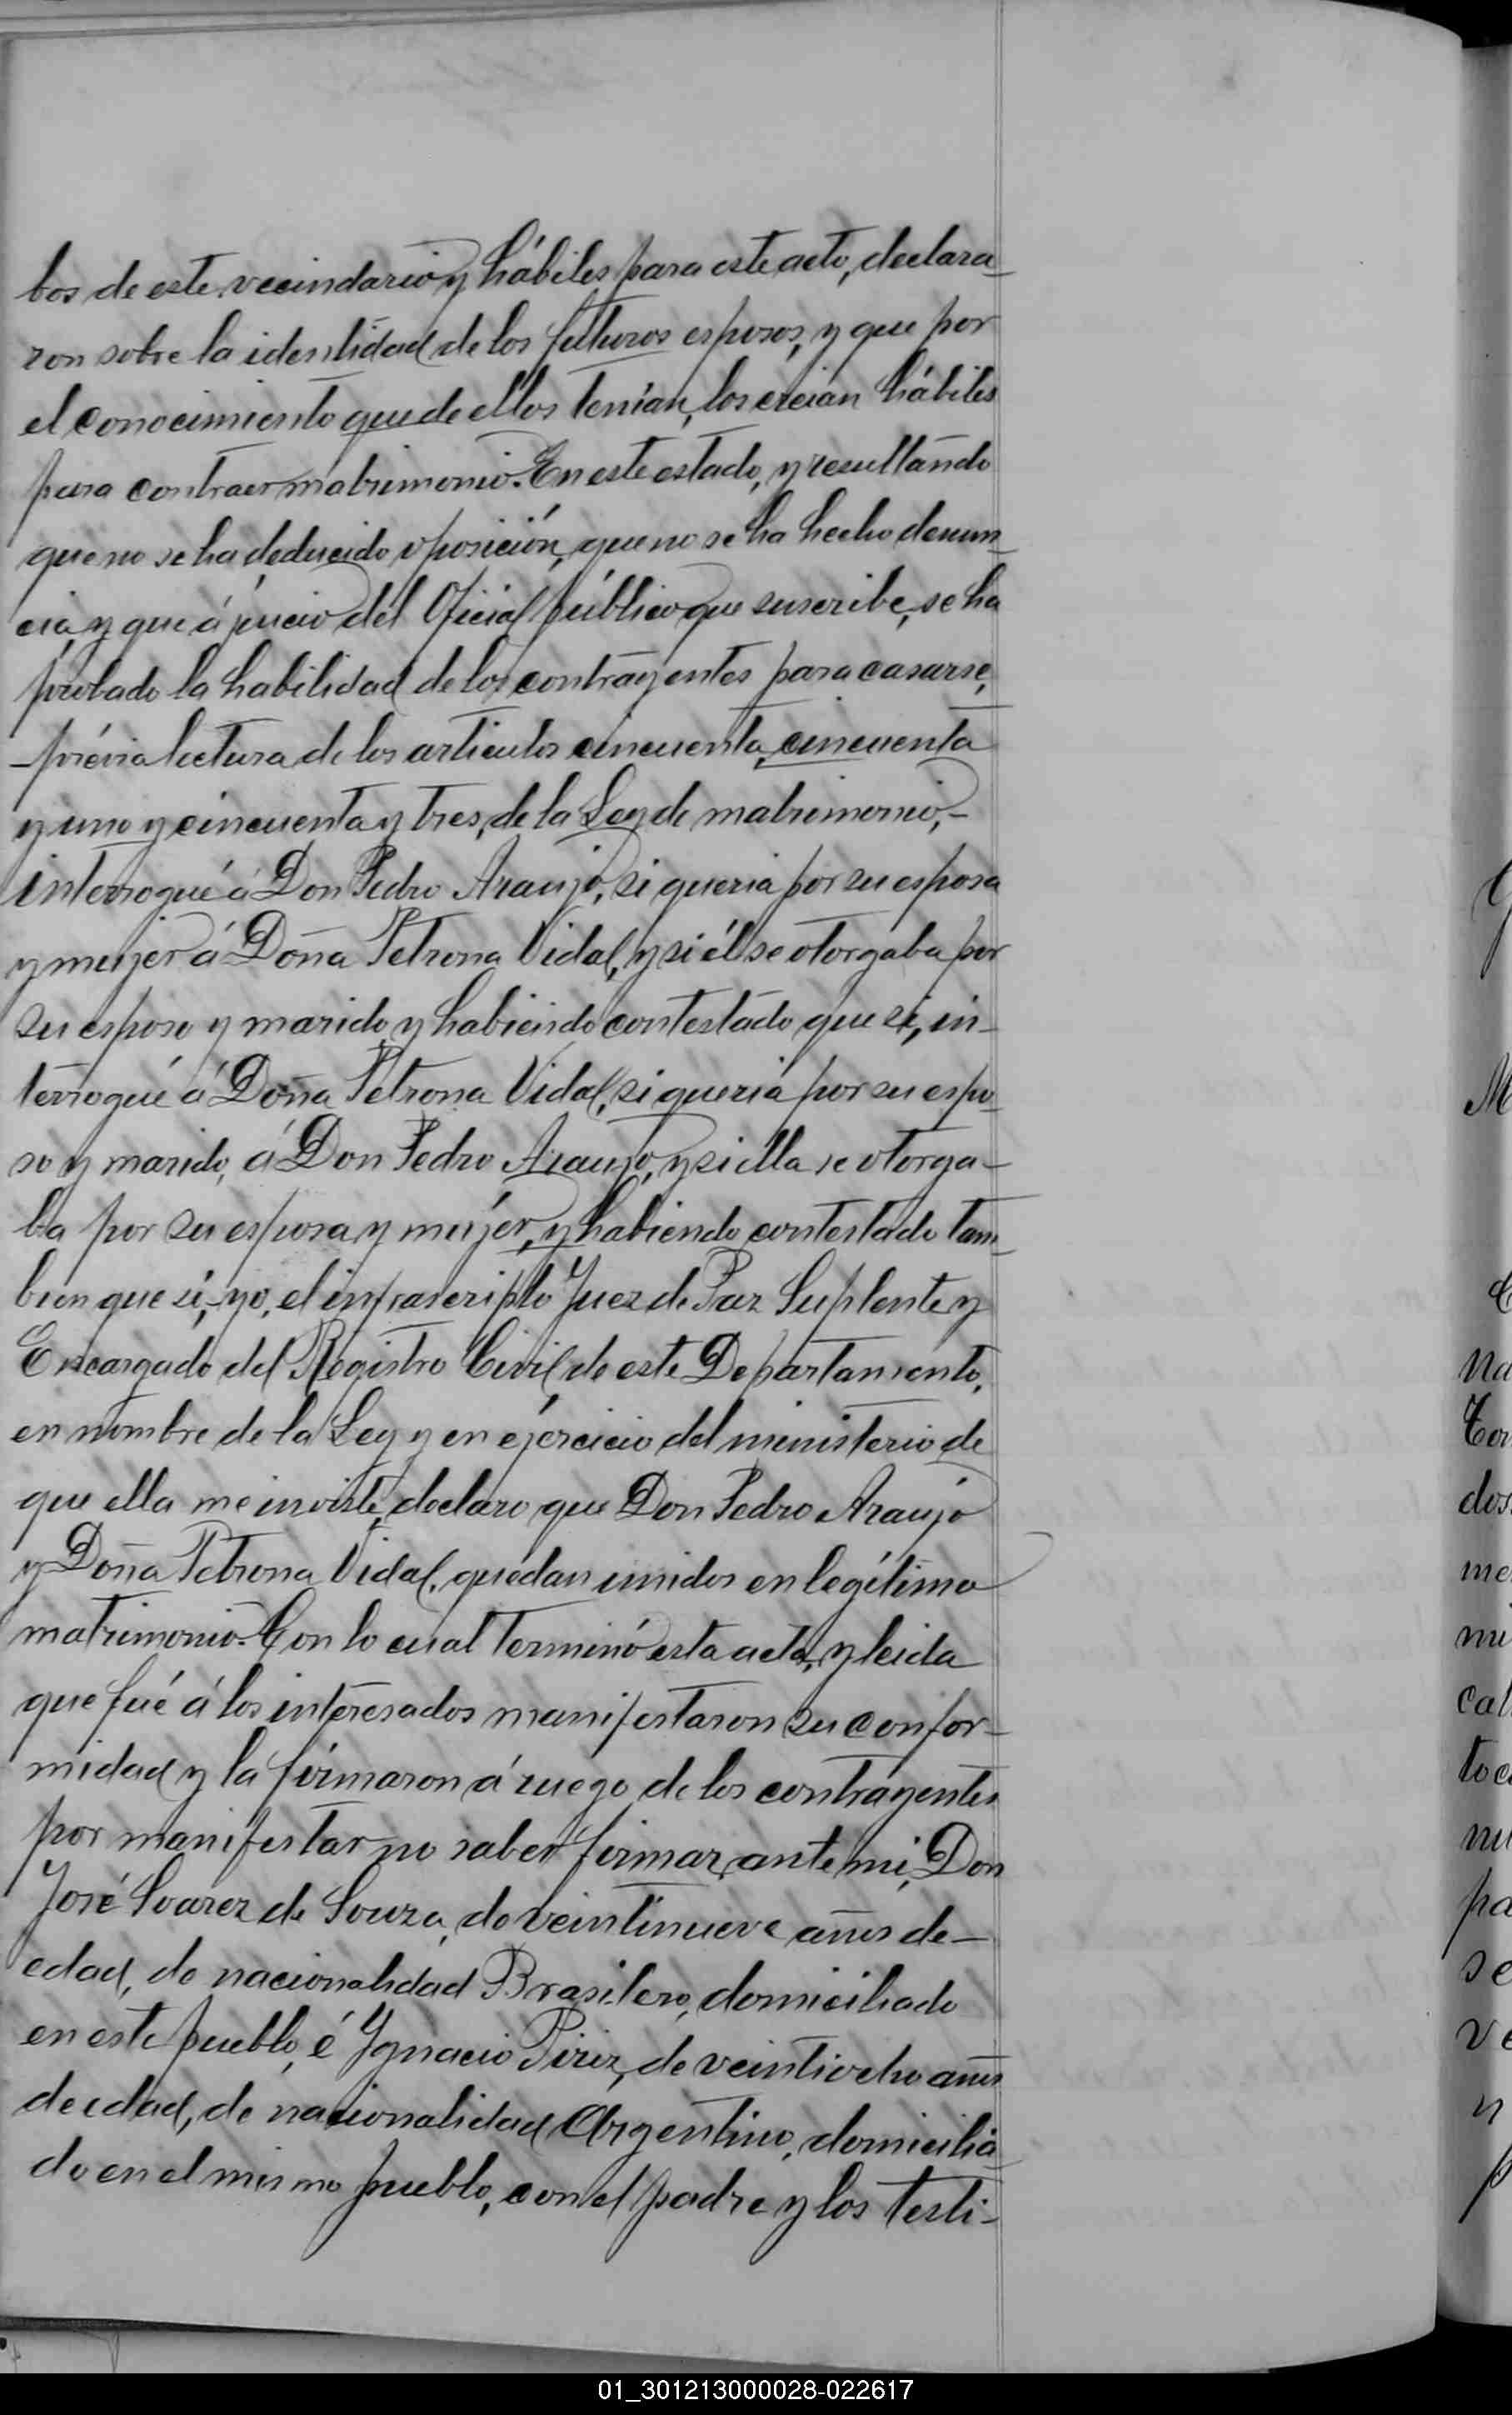 bos de este vecindario y hábiles para este acto, declara-
ron sobre la identidad de los futuros esposos, y que por
el conocimiento que de ellos tenían, los creian hábiles
para contraer matrimonio. En este estado, y resultando
que no se ha deducido oposición, que no se ha hecho denun-
cia, y que á juicio del Oficial público que suscribe, se ha
probado la habilidad de los contrayentes para casarse,
prévia lectura de los articulos cincuenta, cincuenta
y uno y cincuenta y tres, de la Ley de matrimonio,-
interrogué á Don Pedro Araujo, si queria por su esposa
y mujer á Doña Petrona Vidal, y si él se otorgaba por
su esposo y marido, y habiendo contestado que si, in-
terrogué á Doña Petrona Vidal, si queria por su espo-
so y marido, á Don Pedro Araujo, y si ella se otorga-
ba por su esposa y mujer, y habiendo contestado tam-
bien que sí,- yo, el infrascripto Juez de Paz Suplente y
Encargado del Registro Civil de este Departamento,
en nombre de la Ley y en ejercicio del ministerio de
que ella me inviste, declaro que Don Pedro Araujo
y Doña Petrona Vidal, quedan unidos en legítimo
matrimonio. Con lo cual terminó esta acta, y leida
que fué á los interesados manifestaron su confor-
midad y la firmaron á ruego de los contrayentes
por manifestar no saber firmar, ante mi, Don
José Soarez de Souza, de veintinueve años de-
edad, de nacionalidad Brasilero, domiciliado
en este pueblo, é Ygnacio Piriz, de veintiocho años
de edad, de nacionalidad Argentino, domicilia-
do en el mismo pueblo, con el padre y los testi-
01_301213000028-022617